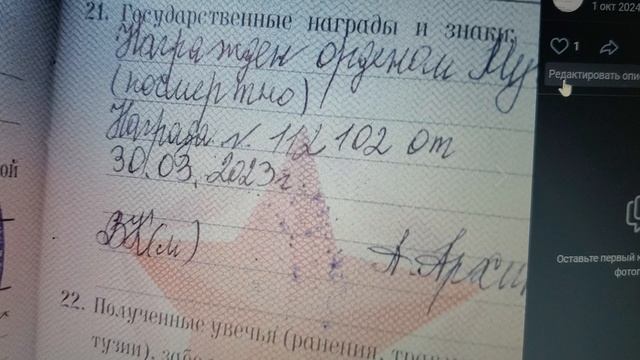 21. Государственные награды и знаки,
Награжден орденом Му
(посмертно)
Награда № 112102 от
30.03.2023г.
ВК(м)
А. Арх
22. Полученные увечья (ранения, трав
тузии), забо
ой
1 окт 2024
1
Редактировать опи
Оставьте первый к
фотог